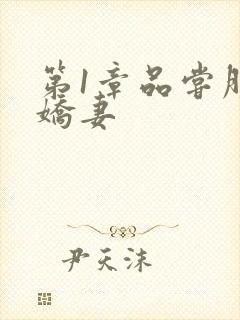 第1章品尝
娇妻
尹天沫